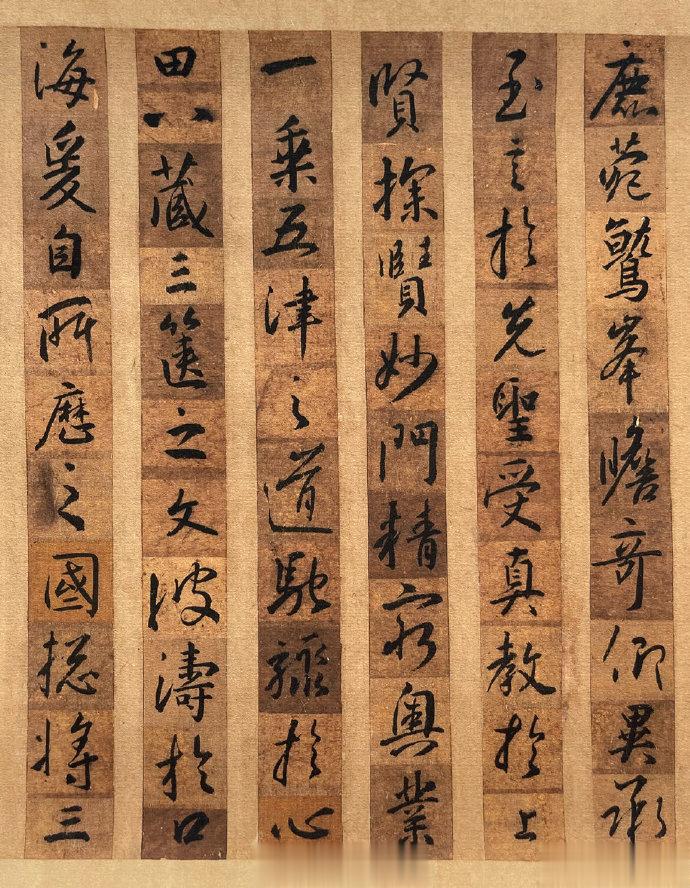 鹿菀鷲峯瞻奇仰異承
至言於先聖受真教於上
賢探賾妙門精窮奧業
一乘五津之道馳驟於心
田八藏三篋之文波濤於口
海爰自所歷之國總將三